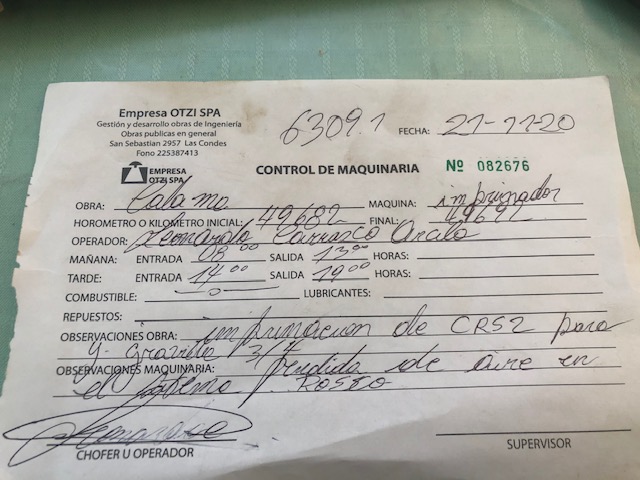 Empresa OTZI SPA
Gestión y desarrollo obras de Ingeniería
Obras publicas en general
San Sebastian 2957 Las Condes
Fono 225387413
6309.1
FECHA: 27-11-20
EMPRESA
OTZI SPA
CONTROL DE MAQUINARIA Nº 082676
OBRA: MAQUINA: imprimador
HOROMETRO O KILOMETRO INICIAL: 49682 FINAL:
OPERADOR: Leonardo Carrasco
MAÑANA: ENTRADA 08:00 SALIDA 13:00 HORAS:
TARDE: ENTRADA 14:00 SALIDA 19:00 HORAS:
COMBUSTIBLE: LUBRICANTES:
REPUESTOS:
OBSERVACIONES OBRA: imprimacion de CRS2 para
OBSERVACIONES MAQUINARIA: perdida de aire en
el
CHOFER U OPERADOR
SUPERVISOR